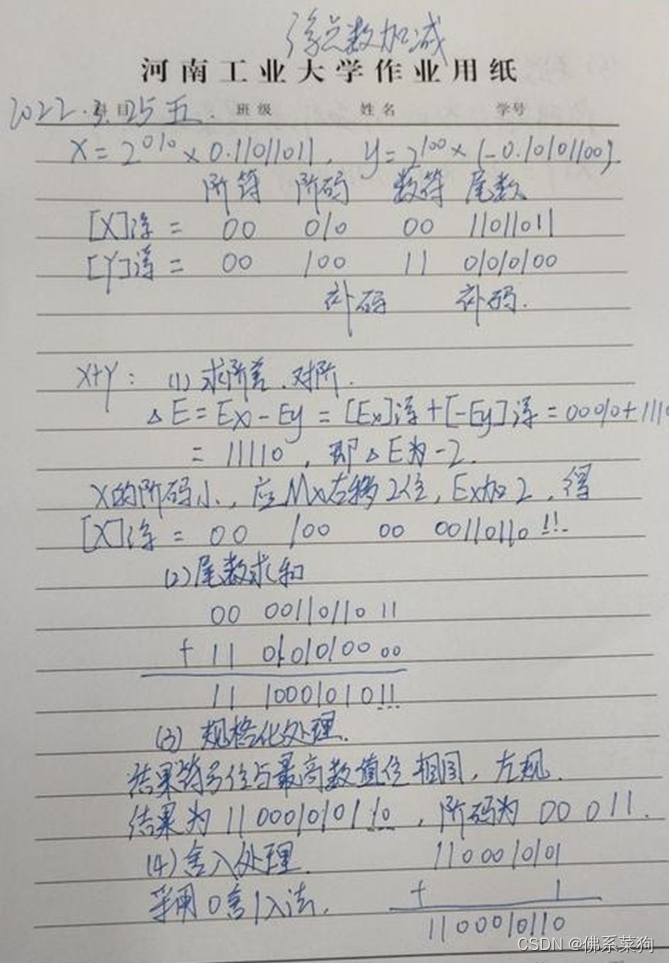 浮点数加减
河南工业大学作业用纸
2022.3.25五. 科目 班级 姓名 学号
X=2^010×0.11011011, y=2^100×(-0.10101100).
阶符 阶码 数符 尾数
[X]浮 = 00 010 00 11011011
[Y]浮 = 00 100 11 01010100
补码 补码.
X+Y: (1) 求阶差.对阶.
△E=Ex-Ey=[Ex]浮+[-Ey]浮=00010+1110
= 11110, 即△E为-2.
X的阶码小,应Mx右移2位,Ex加2,得
[X]浮 = 00 100 00 00110110 11.
(2)尾数求和
00 00110110 11
+ 11 01010100 00
11 10001010 11
(3) 规格化处理.
结果符号位与最高数值位相同,左规.
结果为11 00010101 10, 阶码为 00 011.
(4)舍入处理 1100010101
采用0舍1入法. + 1
1100010110
CSDN @佛系菜狗